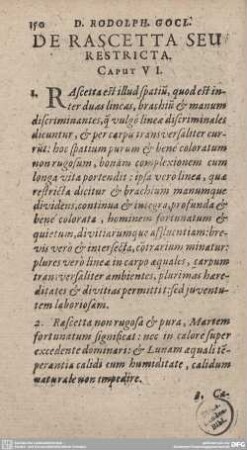 150 D. RODOLPH. GOCL.
DE RASCETTA SEU
RESTRICTA.
CAPUT VI.
1. RAscetta est illud spatiũ, quod est in-
ter duas lineas, brachiũ & manum
discriminantes, q̃ vulgò lineæ discriminales
dicuntur, & per carpũ transversaliter cur-
rũt: hoc spatium purum & benè coloratum
non rugosum, bonam complexionem cum
longa vita portendit: ipsa verò linea, quæ
restricta dicitur & brachium manumque
dividens, continua & integra, profunda &
benè colorata, hominem fortunatum &
quietum, divitiarumque affluentiam: bre-
vis verò & intersecta, cōtrarium minatur:
plures verò lineæ in carpo æquales, carpum
transversaliter ambientes, plurimas hære-
ditates & divitias permittit: sed juventu-
tem laboriosam.
2. Rascetta non rugosa & pura, Martem
fortunatum significat: nec in calore super
excedente dominari: & Lunam æquali tē-
perantia calidi cum humiditate, calidum
naturale non impedire.
3. Ca-